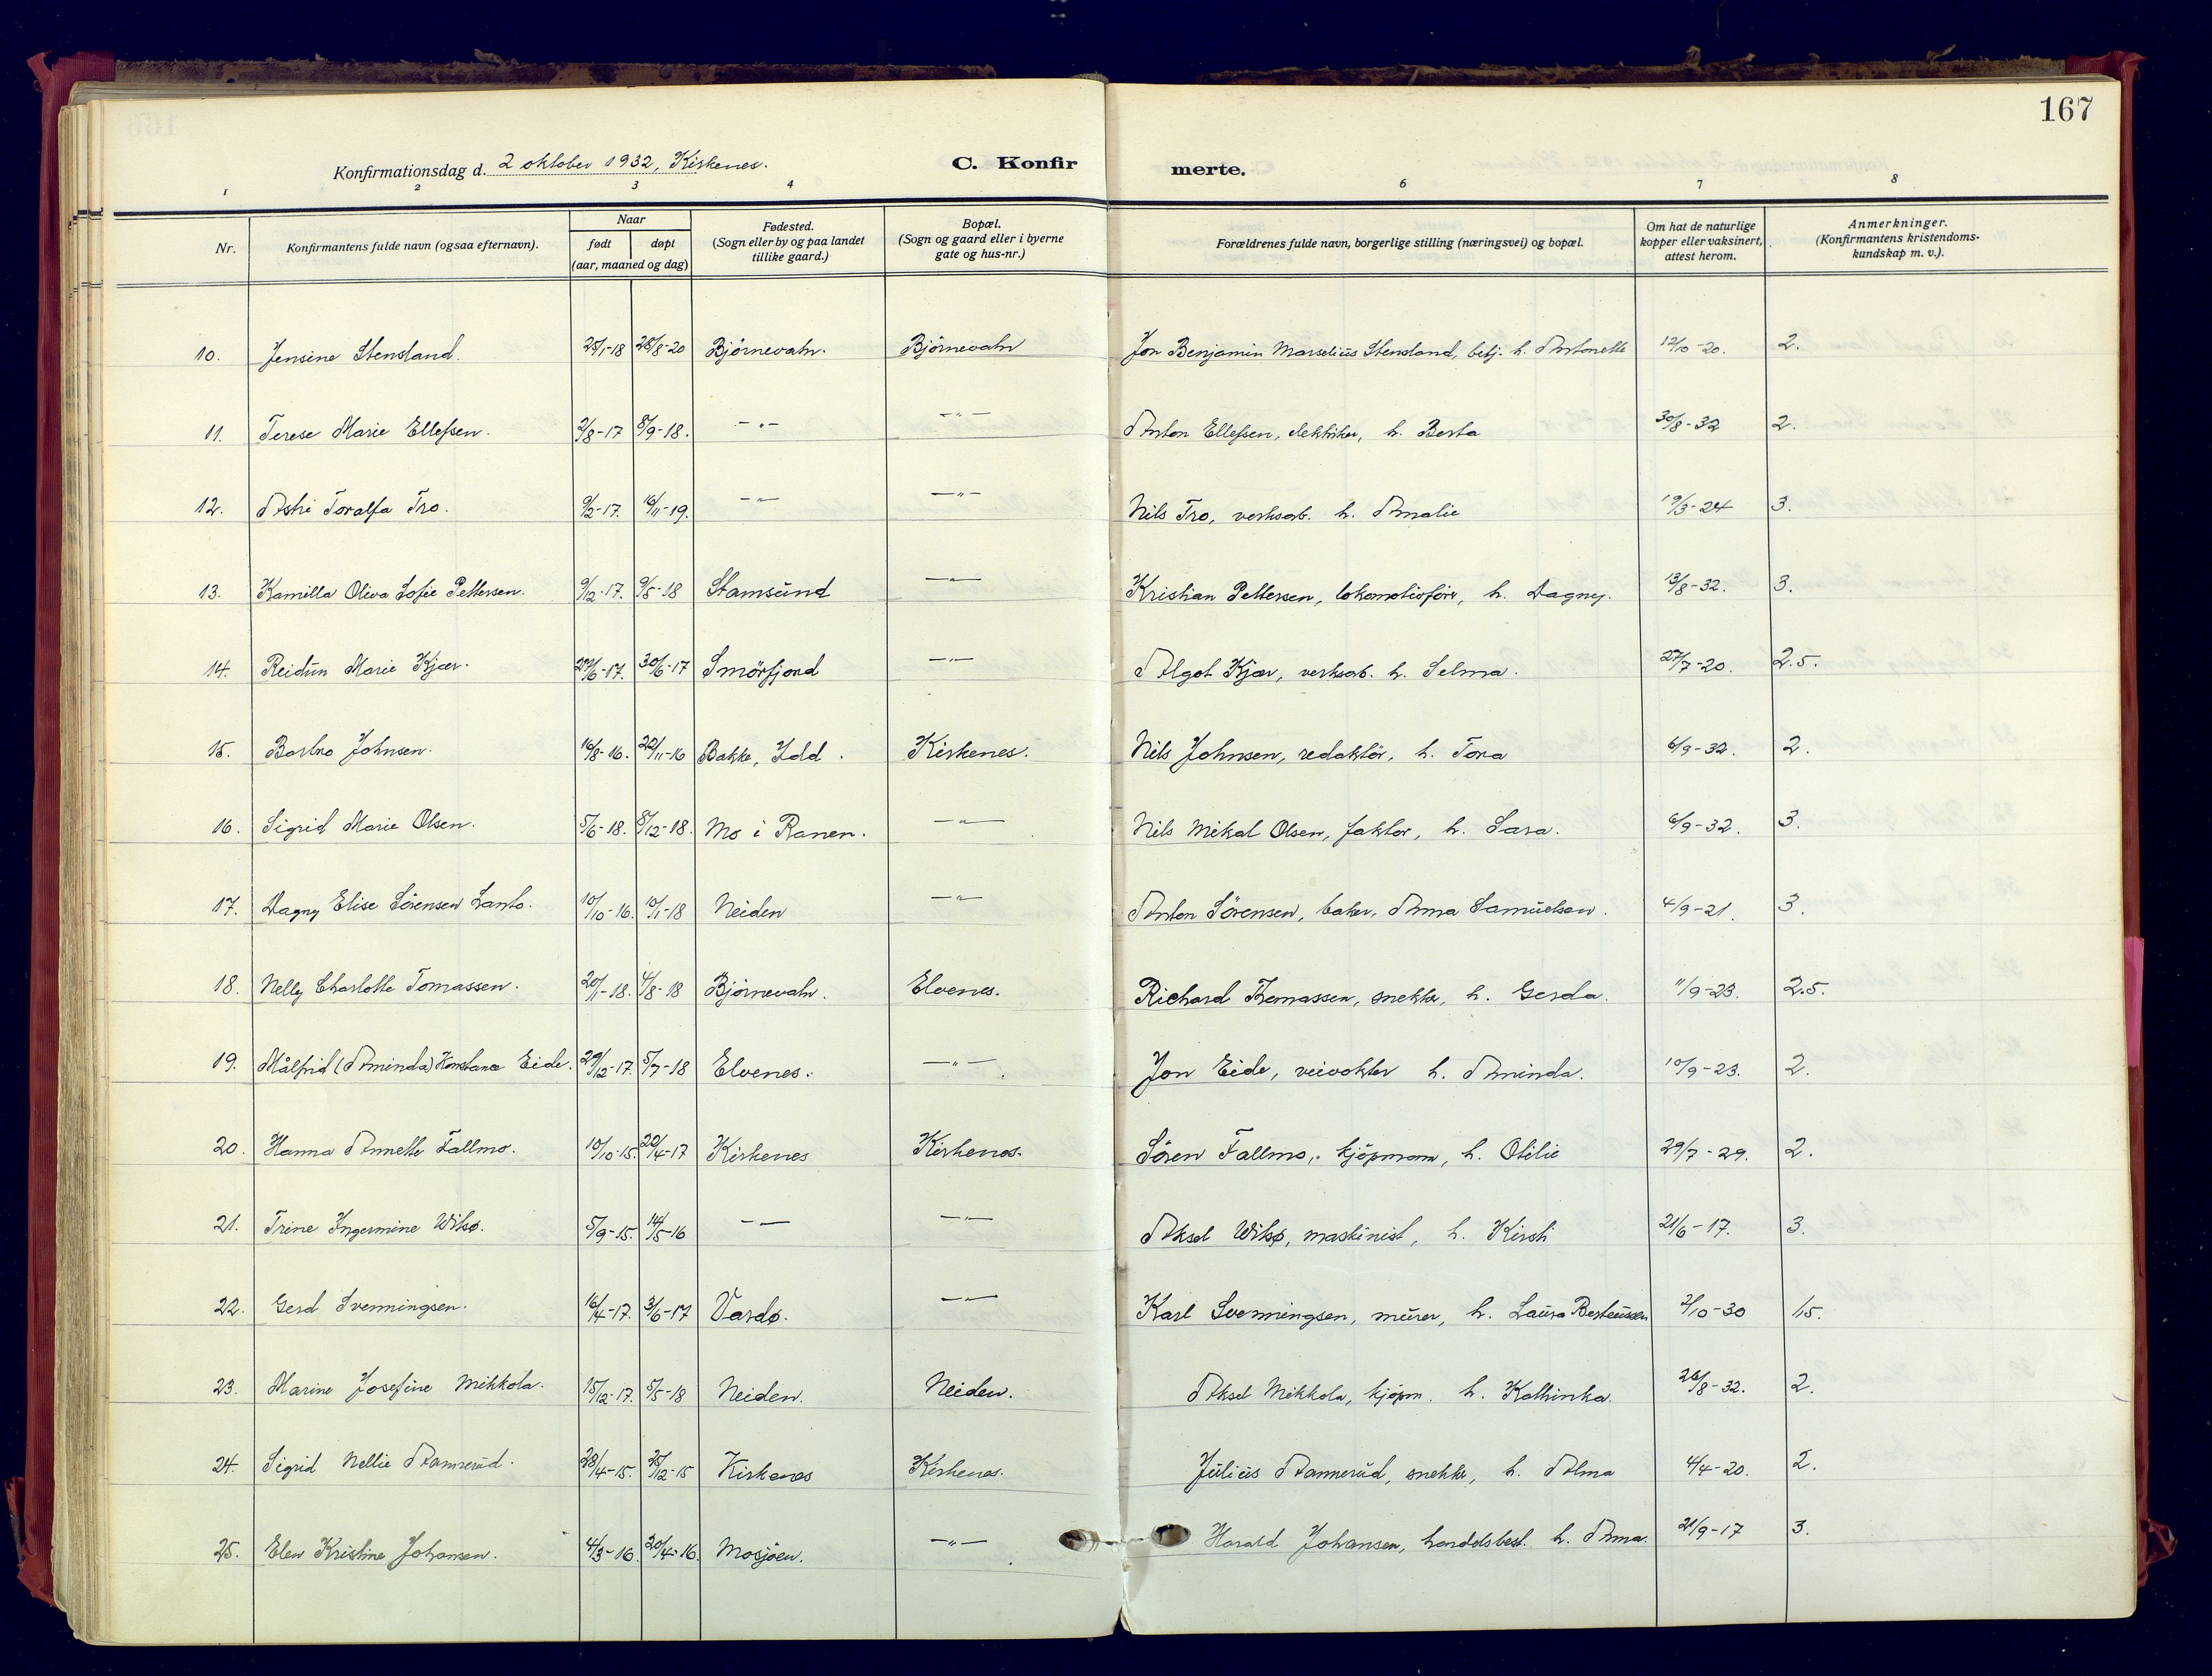 167
Konfirmationsdag d. 2 oktober 1932, Kirkenes.
C. Konfirmerte.
1 2 3 4 6 7 8
Nr. | Konfirmantens fulde navn (ogsaa efternavn). | Naar født | døpt (aar, maaned og dag) | Fødested. (Sogn eller by og paa landet tillike gaard.) | Bopæl. (Sogn og gaard eller i byerne gate og hus-nr.) | Forældrenes fulde navn, borgerlige stilling (næringsvei) og bopæl. | Om hat de naturlige kopper eller vaksinert, attest herom. | Anmerkninger. (Konfirmantens kristendoms-kundskap m. v.).
10. Jensine Stensland. 25/1-18 28/8-20 Björnevatn. Björnevatn Jon Benjamin Marselius Stensland, betj. h. Antonette 12/10-20. 2.
11. Terese Marie Ellefsen. 2/8-17 8/9-18. -"- -"- Anton Ellefsen, elektriker, h. Berta 30/8-32 2.
12. Astri Toralfa Tro. 9/2-17. 16/11-19. -"- -"- Nils Tro, verksarb. h. Amalie 19/3-24 3.
13. Kamilla Oliva Sofie Pettersen. 9/12-17. 9/5-18 Stamsund -"- Kristian Pettersen, lokomotivförer, h. Dagny. 13/8-32. 3.
14. Reidun Marie Kjær. /6-17. 30/6-17 Smörfjord -"- Algot Kjær, verksarb. h. Selma. 27/7-20. 2.5.
15. Borbro Johnsen. 16/8-16. 22/11-16 Bakke, Idd. Kirkenes. Nils Johnsen, redaktör, h. Tora 6/9-32. 2.
16. Sigrid Marie Olsen. 5/6-18. 8/12-18. Mo i Ranen. -"- Nils Mikal Olsen, faktor, h. Sara. 6/9-32. 3.
17. Dagny Elise Sörensen Lanto. 10/10-16. 10/1-18 Neiden -"- Anton Sörensen, baker, Anna Samuelsen. 4/9-21. 3.
18. Nelly Charlotte Tomassen. 20/1-18. 4/8-18 Björnevatn. Elvenes. Richard Thomassen, snekker, h. Gerda. 11/9-23. 2.5.
19. Målfrid (Aminda) Konstance Eide. 29/12-17. 5/7-18 Elvenes. -"- Jon Eide, veivokter h. Aminda. 10/9-23. 2.
20. Hanna Annette Fallmo. 10/10-15. 20/4-17 Kirkenes Kirkenes. Sören Fallmo, kjöpmann, h. Otilie 29/7-29. 2.
21. Trine Ingermine Witsø. 5/9-15. 14/5-16 -- -"- Aksel Witsø, maskinist, h. Kirsti 21/6-17. 3.
22. Gerd Svenningsen. 16/4-17. 3/6-17 Vardø. -"- Karl Svenningsen, murer, h. Laura Berteussen 2/10-30 1,5.
23. Marine Josefine Mikkola. 15/12-17. 5/5-18 Neiden. Neiden. Aksel Mikkola, kjöpm. h. Kathinka. 26/8-32. 2.
24. Sigrid Nellie Aamerud. 28/4-15. 25/12-15 Kirkenes Kirkenes. Julius Aamerud, snekker, h. Alma 4/4-20. 2.
25. Elen Kristine Johansen. 4/3-16. 30/4-16. Mosjöen. -"- Harald Johansen, handelsbest. h. Anna. 21/9-17 3.